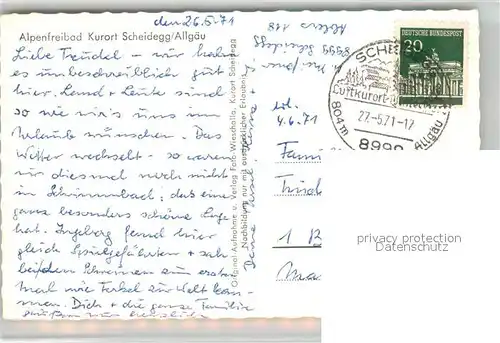 den 26.5.71
Alpenfreibad Kurort Scheidegg/Allgäu
Liebe Traudel - wir haben
es unbeschreiblich gut
hier. Land + Leute sind
so wie wir's uns im
Urlaub wünschen. Das
Wetter wechselt - so waren
wir diesmal noch nicht
im Schwimmbad; das eine
ganz besonders schöne Lage
hat. Ingeborg fand hier
gleich Spielgefährten + sah
bei den Schweinen zum ersten
mal wie Ferkel zur Welt kom-
men. Dich + die ganze Familie
Original-Aufnahme u. Verlag Foto-Wieschalla, Kurort Scheidegg
Nachbildung nur mit ausdrücklicher Erlaubnis
8999 Scheidegg
erl.
4.6.71
Fami
1 B
Ma
DEUTSCHE BUNDESPOST
20
SCHE
Luftkurort
27.-5.71-17
804m
8999
Allgäu
privacy protection
Datenschutz